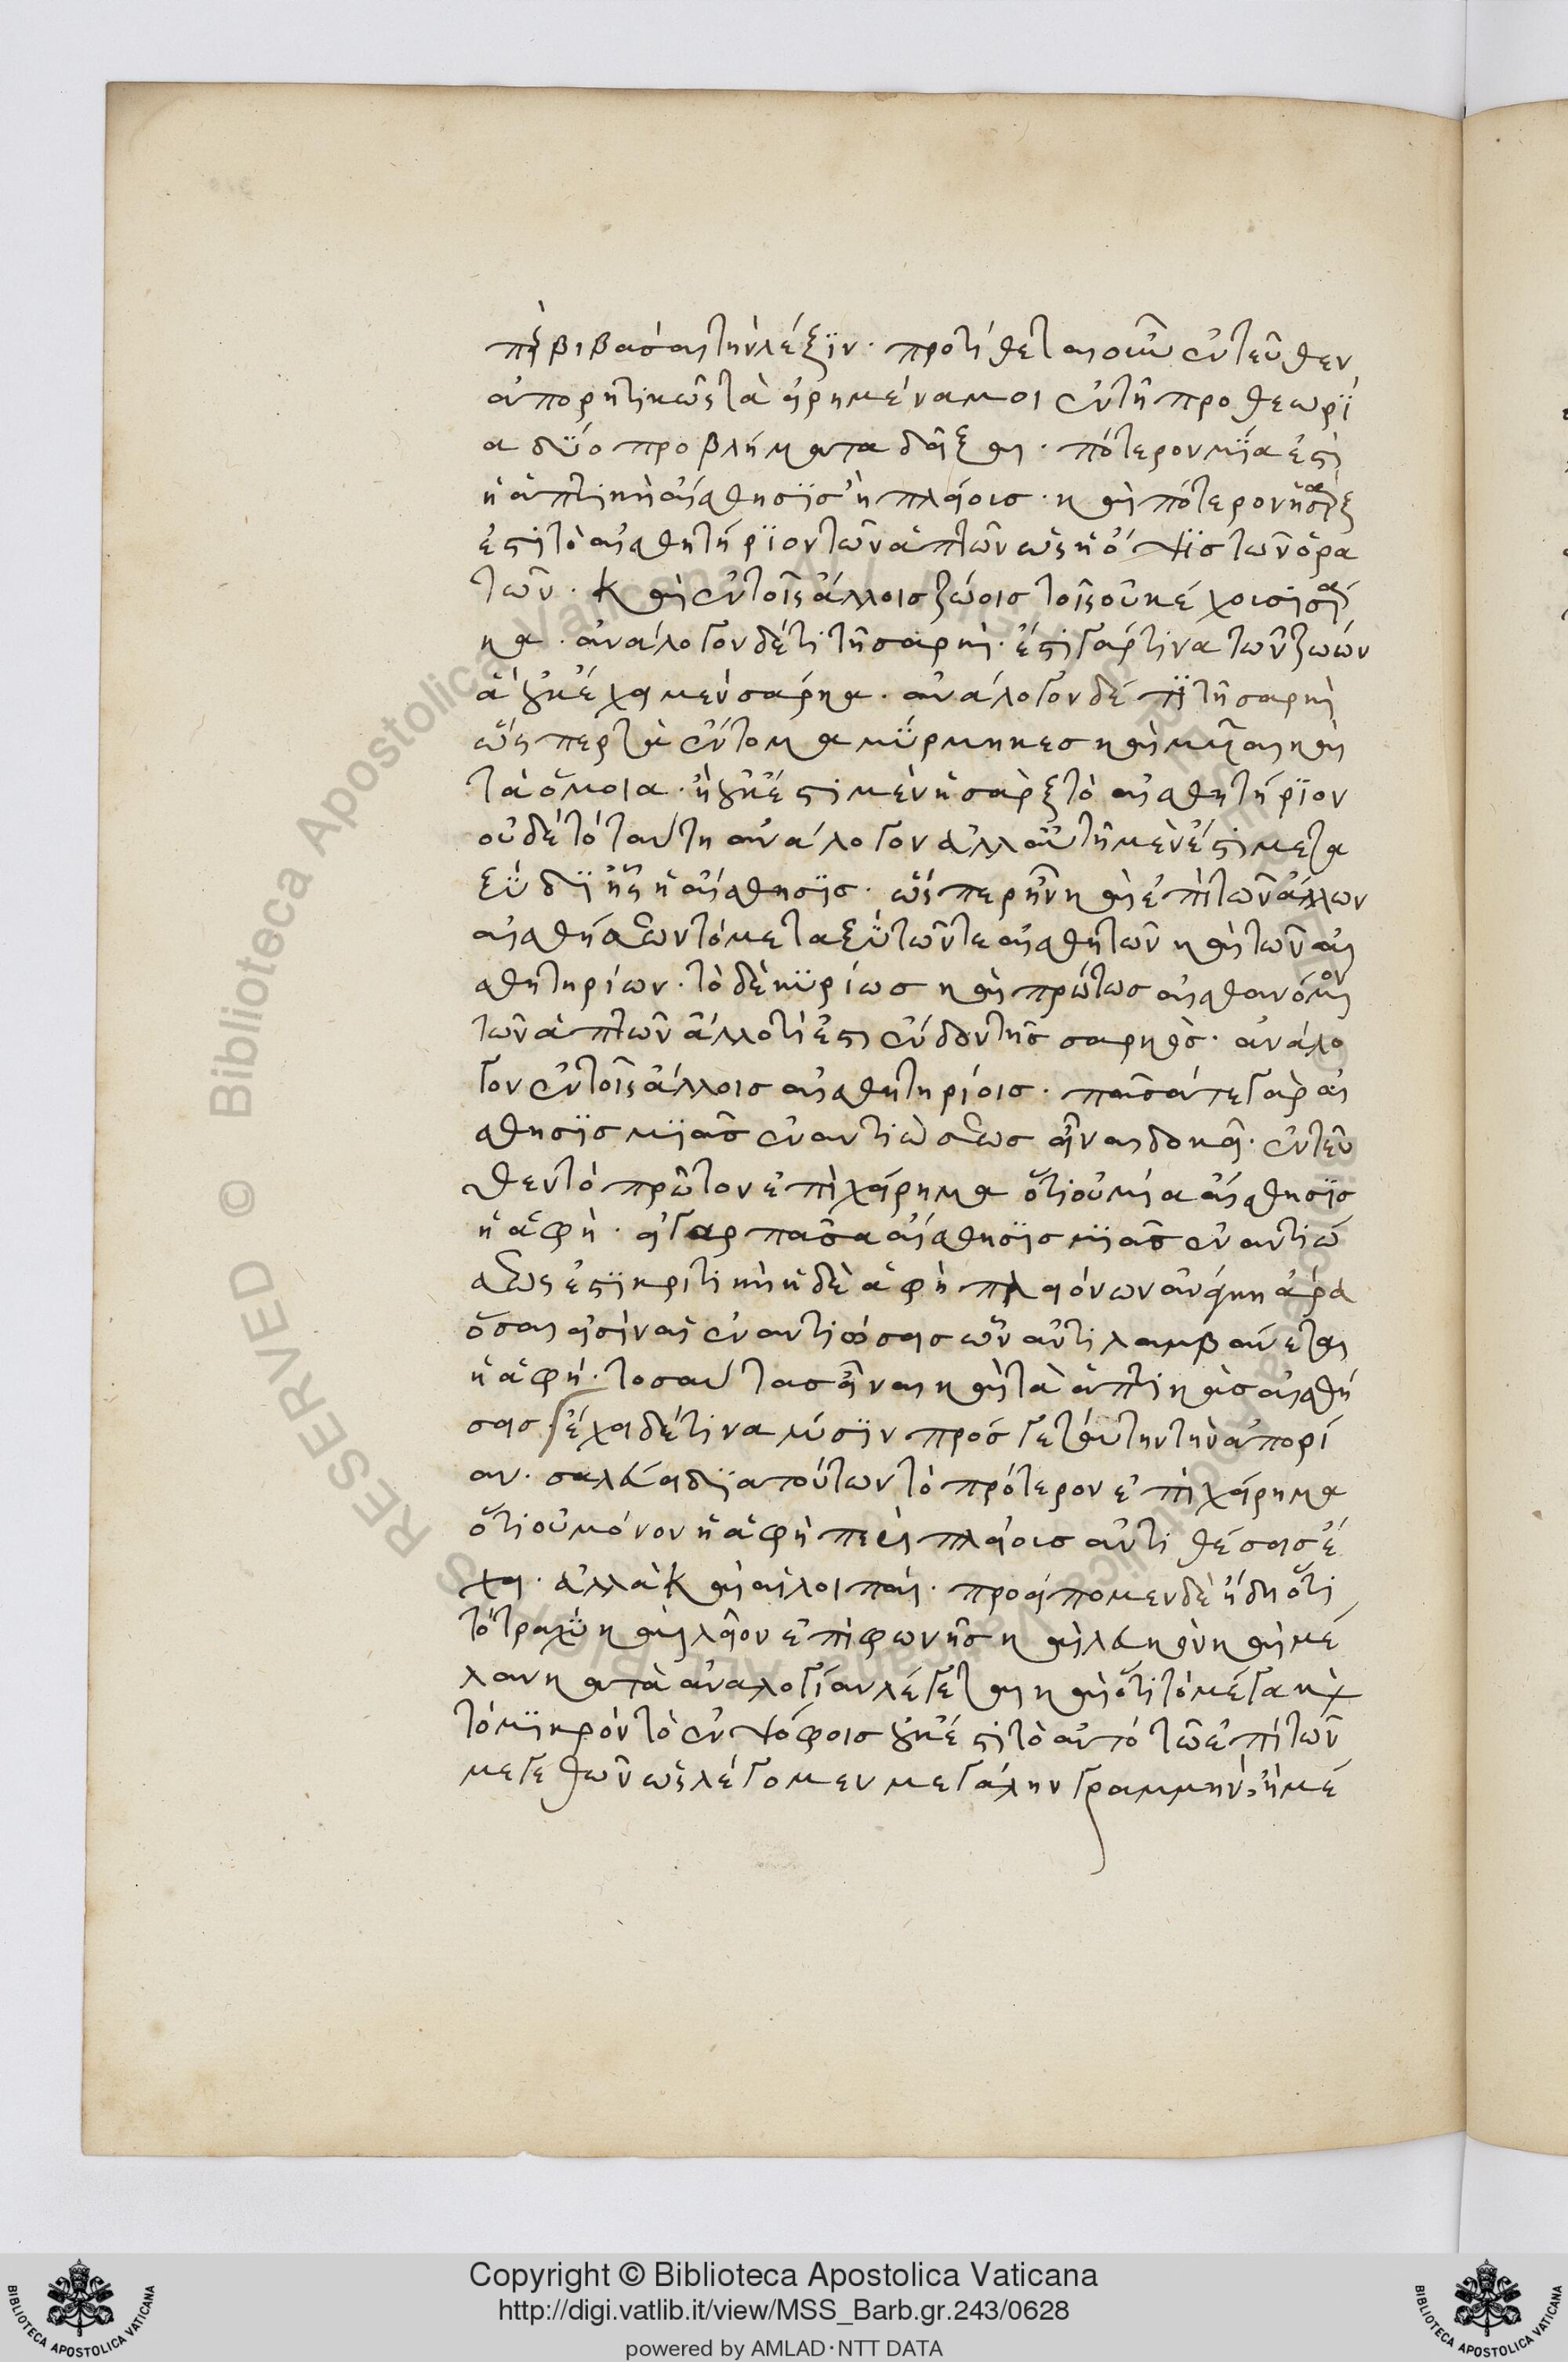 περιβιβάσαι τὴν λέξιν. προτίθεται οὖν ἐντεῦθεν
ἀπορητικῶς τὰ εἰρημένα μοι ἐν τῇ προθεωρί
α δύο προβλήματα δεῖξαι. πότερον μία ἐστὶ
ἡ ἁπτικὴ αἴσθησις ἢ πλείους. καὶ πότερον ἡ σάρξ
ἐστι τὸ αἰσθητήριον τῶν ἁπτῶν ὡς ἡ ὄψις τῶν ὁρα
τῶν. καὶ ἐν τοῖς ἄλλοις ζώοις τοῖς οὐκ ἔχουσι σάρ
κα. ἀνάλογον δέ τι τῇ σαρκί. ἔστι γάρ τινα τῶν ζώων
ἃ οὐκ ἔχει μὲν σάρκα. ἀνάλογον δέ τι τῇ σαρκὶ
ὥσπερ τὰ ἔντομα μύρμηκες καὶ μυῖαι καὶ
τὰ ὅμοια. ἢ οὐκ ἔστι μὲν ἡ σὰρξ τὸ αἰσθητήριον
οὐδὲ τὸ ταύτῃ ἀνάλογον ἀλλ' αὕτη μέν ἐστι μετα
ξὺ δι' ἧς ἡ αἴσθησις. ὥσπερ ἦν καὶ ἐπὶ τῶν ἄλλων
αἰσθήσεων τὸ μεταξὺ τῶν τε αἰσθητῶν καὶ τῶν αἰ
σθητηρίων. τὸ δὲ κυρίως καὶ πρώτως αἰσθανόμενον
τῶν ἁπτῶν ἄλλο τί ἐστι ἔνδον τῆς σαρκός. ἀνάλο
γον ἐν τοῖς ἄλλοις αἰσθητηρίοις. πᾶσά τε γὰρ αἴ
σθησις μιᾶς ἐναντιώσεως εἶναι δοκεῖ. ἐντεῦ
θεν τὸ πρῶτον ἐπιχείρημα ὅτι οὐ μία αἴσθησις
ἡ ἁφή. εἰ γὰρ πᾶσα αἴσθησις μιᾶς ἐναντιώ
σεώς ἐστι κριτικὴ ἡ δὲ ἁφὴ πλειόνων ἀνάγκη ἄρα
ὅσαι εἰσὶν αἱ ἐναντιώσεις ὧν ἀντιλαμβάνεται
ἡ ἁφή. τοσαύτας εἶναι καὶ τὰς ἁπτικὰς αἰσθή
σεις. ἔχει δέ τινα λύσιν πρός γε ταύτην τὴν ἀπορί
αν. σαλεύει διὰ τούτων τὸ πρότερον ἐπιχείρημα
ὅτι οὐ μόνον ἡ ἁφὴ περὶ πλείους ἀντιθέσεις ἔ
χει. ἀλλὰ καὶ αἱ λοιπαί. προείπομεν δὲ ἤδη ὅτι
τὸ τραχὺ καὶ λεῖον ἐπὶ φωνῆς καὶ λευκὸν καὶ μέ
λαν κατὰ ἀναλογίαν λέγεται καὶ ὅτι τὸ μέγα καὶ
τὸ μικρὸν τὸ ἐν ψόφοις οὐκ ἔστι τὸ αὐτὸ τῷ ἐπὶ τῶν
μεγεθῶν ὡς λέγομεν μεγάλην γραμμὴν, ἢ μέ
Copyright © Biblioteca Apostolica Vaticana
http://digi.vatlib.it/view/MSS_Barb.gr.243/0628
powered by AMLAD·NTT DATA